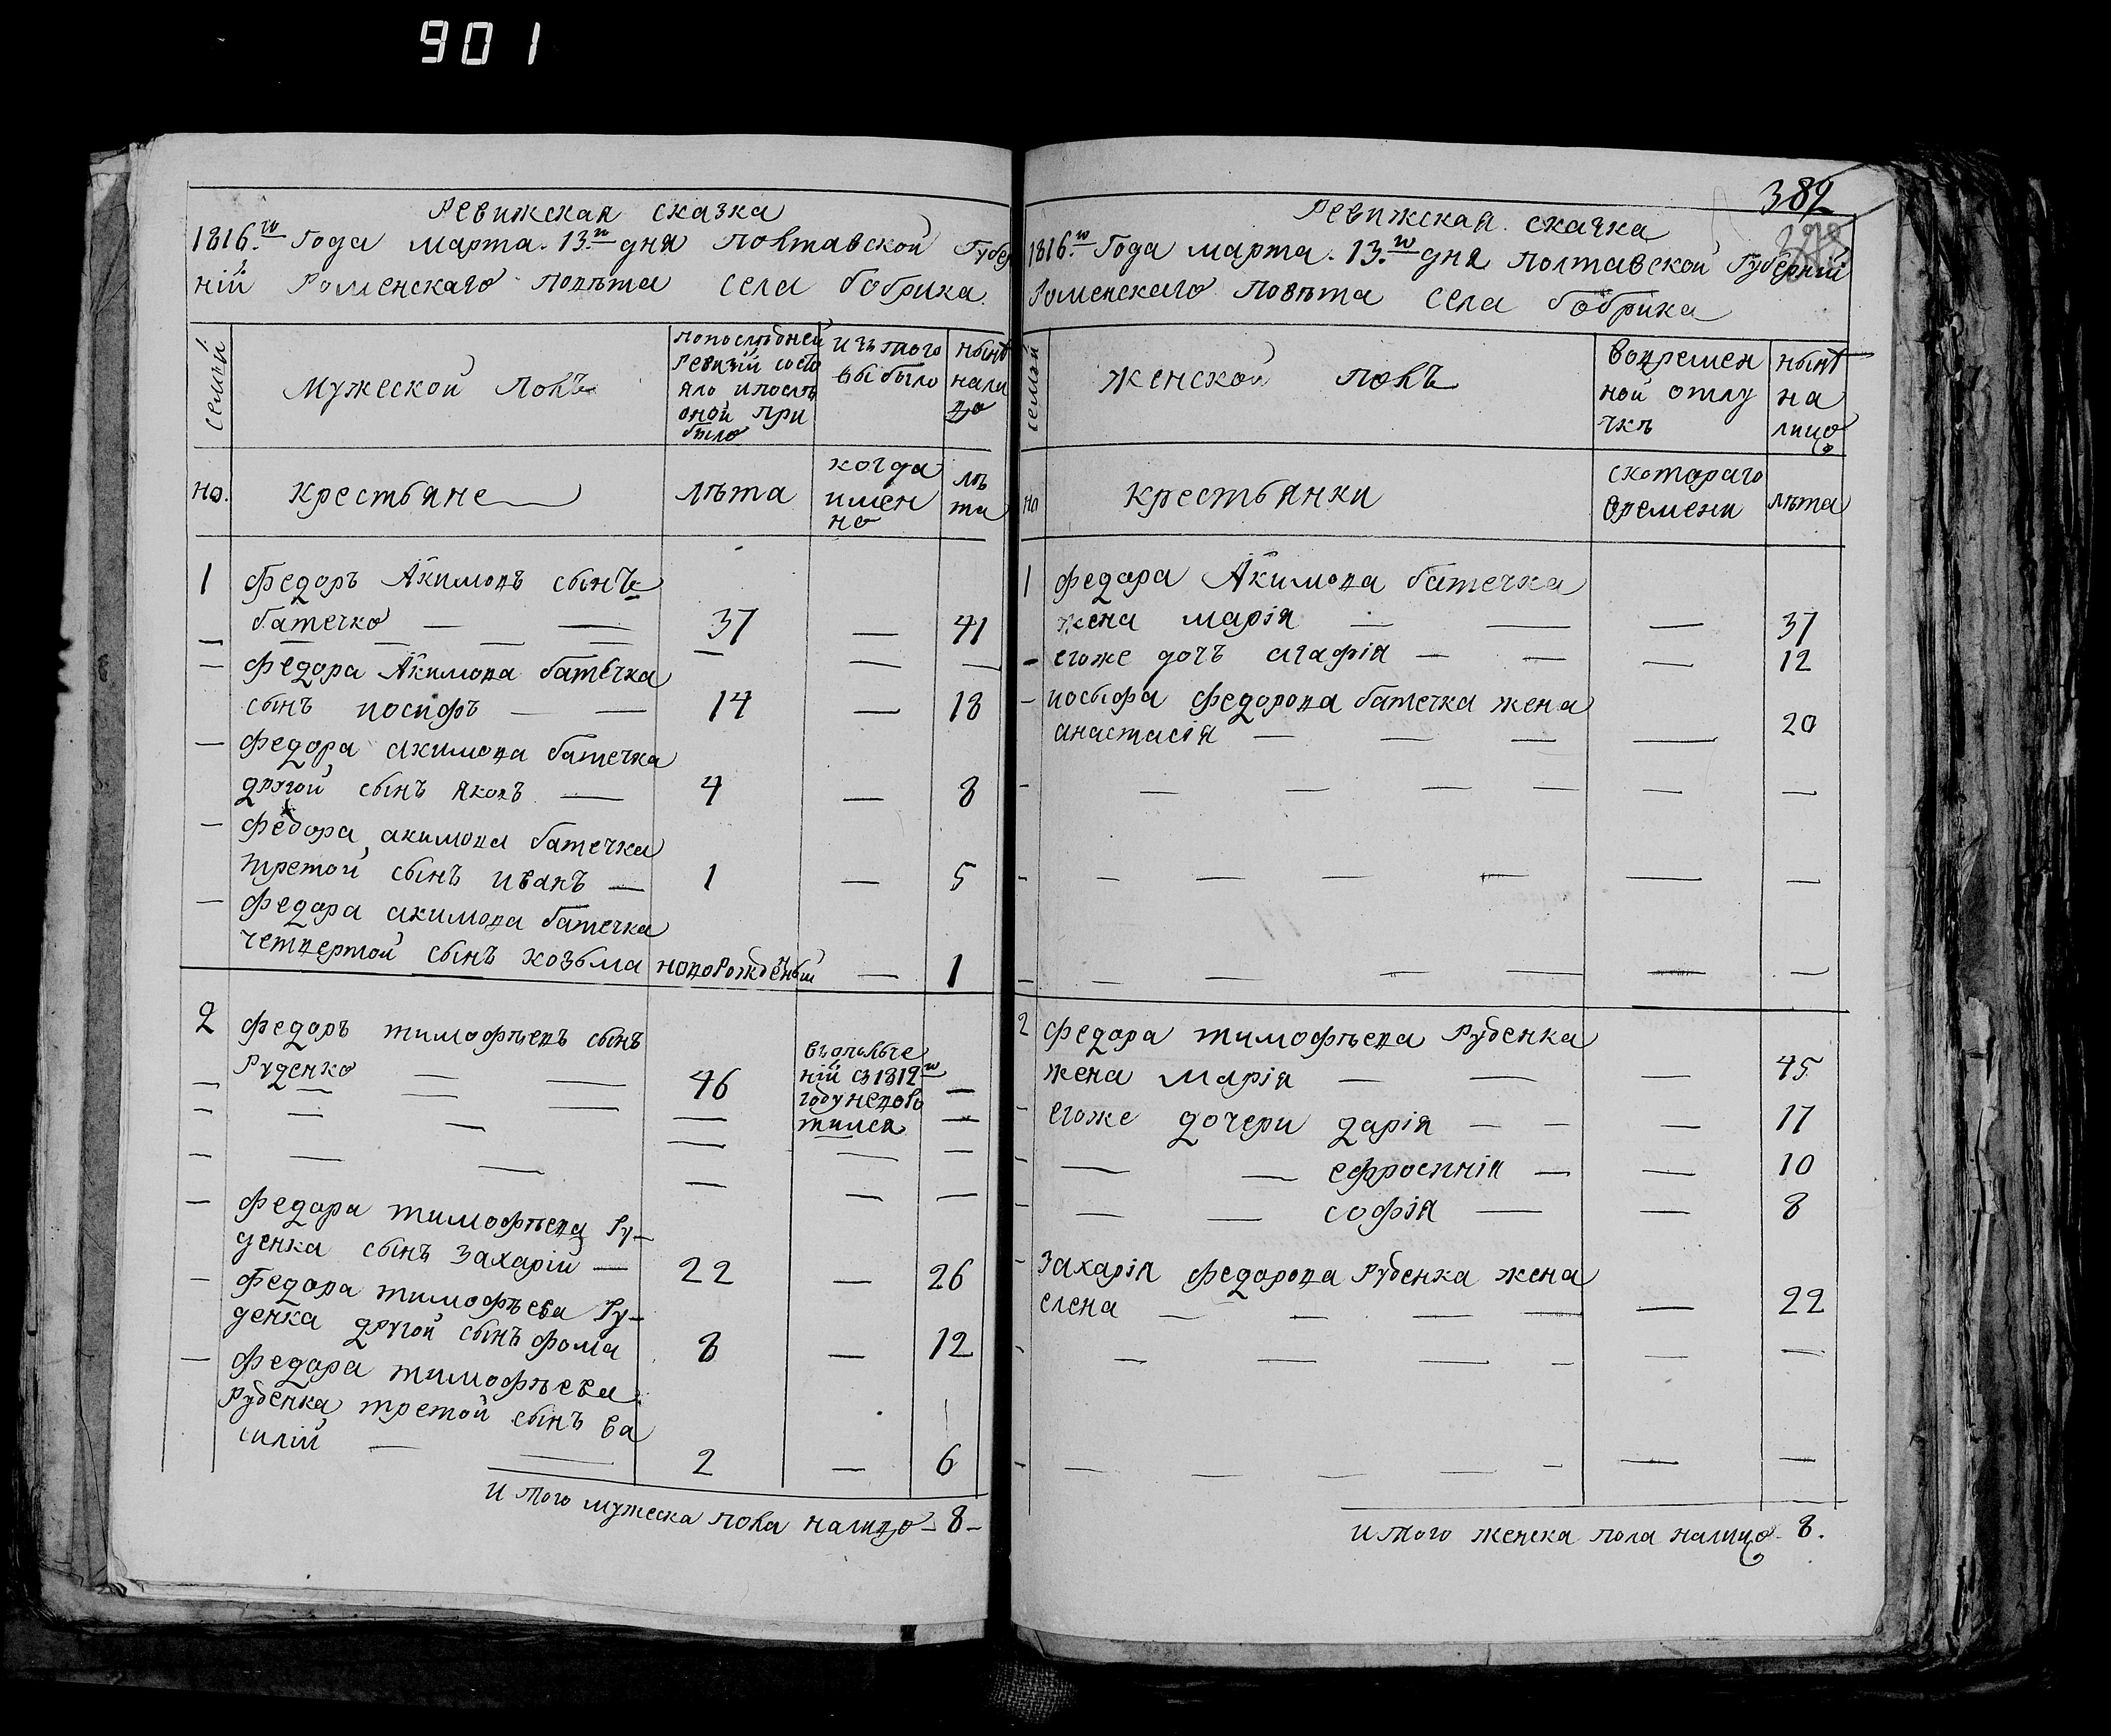 901
Ревижская сказка
1816.го Года марта. 13.го дня полтавской Губер
ніи Роменскаго повѣта села бобрика
семьи
Мужеской полъ
попослѣдней
ревизіи состо
яло и послѣ
оной при
было
изъ того
выбыло
нынѣ
нали
цо
но.
крестьяне
лѣта
когда
имен
но
лѣ
та
1 федоръ Акимовъ сынъ
батечко — — 37 — 41
— федора Акимова батечка
сынъ иосифъ — — 14 — 18
— федора акимова батечка
другой сынъ яковъ — 4 — 8
— федора акимова батечка
третой сынъ иванъ — 1 — 5
— федора акимова батечка
четвертой сынъ козьма новорожденый — 1
2 федоръ тимофѣевъ сынъ
Руденко — — 46
въ ополче
ніи с 1812го
году невозвро
тился
— федора тимофѣева Ру-
денка сынъ захарій — 22 — 26
— федора тимофѣева Ру-
денка другой сынъ фома 8 — 12
— федора тимофѣева
Руденка третой сынъ ва
силій — — 2 — 6
и того мужеска пола налицо — 8 —
382
Ревижская скачка
1816.го Года марта. 13.го дня полтавской Губерніи
Роменскаго повѣта села бобрика
семьи
женской полъ
вовремен
ной отлу
чкѣ
нынѣ
на
лицо
но
крестьянки
скотораго
времени
лѣта
1 федора Акимова батечка
жена марія — — — 37
— егоже дочъ агафія — — — 12
— иосыфа федорова батечка жена
анастасія — — — — 20
2 федора тимофѣева Руденка
жена марія — — — 45
— егоже дочери дарія — — — 17
— — — ефросинія — — 10
— — — софія — — 8
— захарія федорова Руденка жена
елена — — — — — 22
и того женска пола налицо — 8.